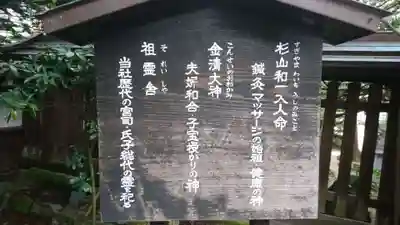 杉山和一大人命
すぎやまわいちうしのみこと
鍼灸マッサージの始祖 健康の神
金清大神
こんせいのおおかみ
夫婦和合 子宝授かりの神
祖霊舎
それいしゃ
当社歴代の宮司・氏子総代の霊を祀る